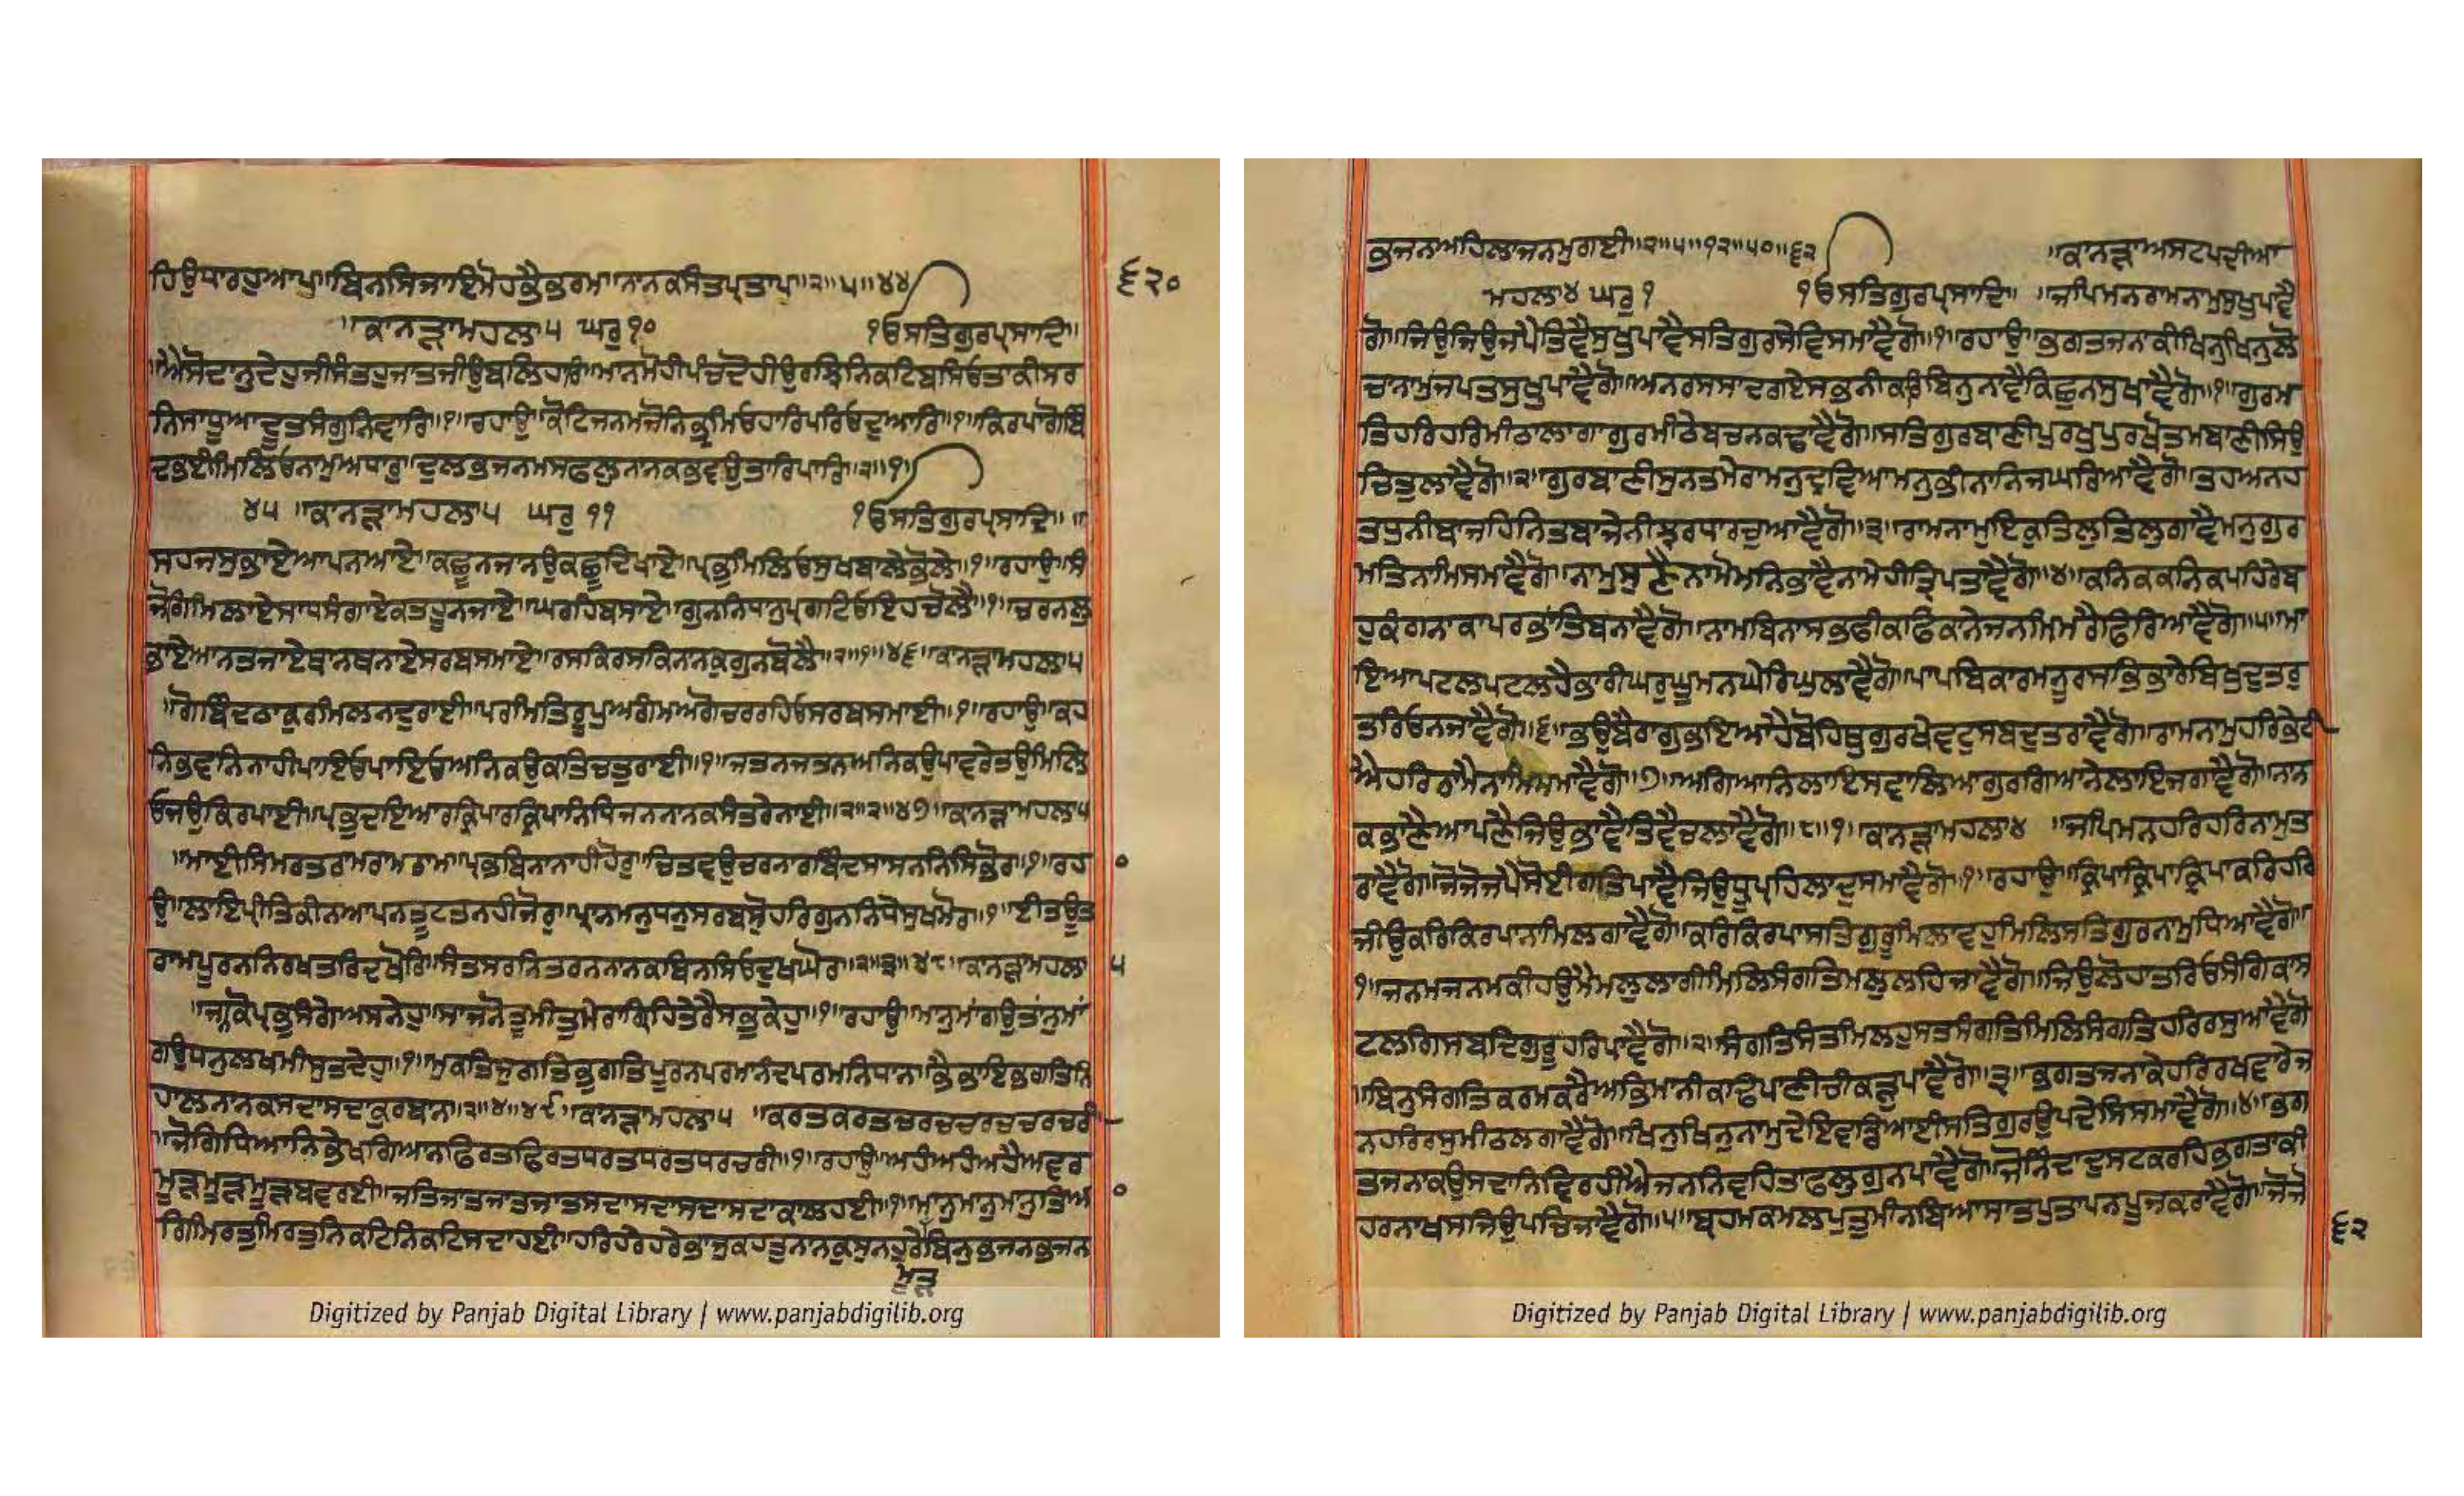 ਹਿਉਧਾਰਹੁਆਪਾ॥ਬਿਨਸਿਜਾਇਮੋਹਭੈਭਰਮਾਨਾਨਕਸੰਤਪ੍ਰਤਾਪ॥੨॥੫॥੪੪
੬੨੦
॥ਕਾਨੜਾਮਹਲਾ੫ ਘਰੁ੧੦ ੧ੳਸਤਿਗੁਰਪ੍ਰਸਾਦਿ॥
॥ਐਸੋਦਾਨੁਦੇਹੁਜੀਸੰਤਹੁਜਾਤਜੀਉਬਲਿਹਾਰਿ॥ਮਾਨਮੋਹੀਪੰਚਦੋਹੀਉਰਝਿਨਿਕਟਿਬਸਿਓਤਾਕੀਸਰ
ਨਿਸਾਧੂਆਦੂਤਸੰਗੁਨਿਵਾਰਿ॥੧॥ਰਹਾਉ॥ਕੋਟਿਜਨਮਜੋਨਿਭ੍ਰਮਿਓਹਾਰਿਪਰਿਓਦੁਆਰਿ॥੧॥ਕਿਰਪਾਗੋਬਿੰ
ਦਭਈਮਿਲਿਓਨਾਮੁਅਧਾਰੁ॥ਦੁਲਭਜਨਮਸਫਲੁਨਾਨਕਭਵਉਤਾਰਿਪਾਰਿ॥੨॥੧॥
੪੫ ॥ਕਾਨੜਾਮਹਲਾ੫ ਘਰੁ ੧੧ ੧ੳਸਤਿਗੁਰਪ੍ਰਸਾਦਿ॥ ॥
ਸਹਜਸੁਭਾਏਆਪਨਆਏ॥ਕਛੂਨਜਾਨਉਕਛੂਦਿਖਾਏ॥ਪ੍ਰਭੁਮਿਲਿਓਸੁਖਬਾਲੇਭੋਲੇ॥੧॥ਰਹਾਉ॥ਸੰ
ਜੋਗਿਮਿਲਾਏਸਾਧਸੰਗਾਏਕਤਹੂਨਜਾਏ॥ਘਰਹਿਬਸਾਏ॥ਗੁਨਨਿਧਾਨੁਪ੍ਰਗਟਿਓਇਹਚੋਲੈ॥੧॥ਚਰਨਲੁ
ਭਾਏਆਨਤਜਾਏਥਾਨਥਨਾਏਸਰਬਸਮਾਏ॥ਰਸਕਿਰਸਕਿਨਾਨਕਗੁਨਬੋਲੈ॥੨॥੧॥੪੬॥ਕਾਨੜਾਮਹਲਾ੫
॥ਗੋਬਿੰਦਠਾਕੁਰਮਿਲਨਦੁਰਾਈ॥ਪਰਮਿਤਿਰੂਪੁਅਗੰਮਅਗੋਚਰਰਹਿਓਸਰਬਸਮਾਈ॥੧॥ਰਹਾਉ॥ਕਹ
ਨਿਭਵਨਿਨਾਹੀਪਾਇਓਪਾਇਓਅਨਿਕਉਕਤਿਚਤੁਰਾਈ॥੧॥ਜਤਨਜਤਨਅਨਿਕਉਪਾਵਰੇਤਉਮਿਲਿ
ਓਜਉਕਿਰਪਾਈ॥ਪ੍ਰਭੂਦਇਆਰਕ੍ਰਿਪਾਰਕ੍ਰਿਪਾਨਿਧਿਜਨਨਾਨਕਸੰਤਰੇਨਾਈ॥੨॥੨॥੪੭॥ਕਾਨੜਾਮਹਲਾ੫
॥ਮਾਈਸਿਮਰਤਰਾਮਰਾਮਰਾਮ॥ਪ੍ਰਭਬਿਨਾਨਾਹੀਹੋਰੁ॥ਚਿਤਵਉਚਰਨਾਰਬਿੰਦਸਾਸਨਨਿਸਿਭੋਰ॥੧॥ਰਹ ੦
ਉ॥ਲਾਇਪ੍ਰੀਤਿਕੀਨਆਪਨਤੂਟਤਨਹੀਜੋਰੁ॥ਪ੍ਰਾਨਮਨੁਧਨੁਸਰਬਸੋੁਹਰਿਗੁਨਨਿਧੇਸੁਖਮੋਰ॥੧॥ਈਤਊਤ
ਰਾਮਪੂਰਨਨਿਰਖਤਰਿਦਖੋਰਿ॥ਸੰਤਸਰਨਿਤਰਨਨਾਨਕਬਿਨਸਿਓਦੁਖਘੋਰ॥੨॥੩॥੪੮॥ਕਾਨੜਾਮਹਲਾ ੫
॥ਜਨਕੋਪ੍ਰਭੁਸੰਗੇਅਸਨੇਹੁ॥ਸਾਜਨੋਤੂਮੀਤੁਮੇਰਾਗ੍ਰਿਹਿਤੇਰੈਸਭੁਕੇਹੁ॥੧॥ਰਹਾਉ॥ਮਾਨੁਮਾਂਗਉਤਾਨੁਮਾਂ
ਗਉਧਨੁਲਖਮੀਸੁਤਦੇਹ॥੧॥ਮੁਕਤਿਜੁਗਤਿਭੁਗਤਿਪੂਰਨਪਰਮਾਨੰਦਪਰਮਨਿਧਾਨ॥ਭੈਭਾਇਭਗਤਿਨਿ
ਹਾਲਨਾਨਕਸਦਾਸਦਾਕੁਰਬਾਨ॥੨॥੪॥੪੯॥ਕਾਨੜਾਮਹਲਾ੫ ॥ਕਰਤਕਰਤਚਰਚਚਰਚਚਰਚਰੀ
॥ਜੋਗਿਧਿਆਨਿਭੇਖਗਿਆਨਫਿਰਤਫਿਰਤਧਰਤਧਰਤਧਰਚਰੀ॥੧॥ਰਹਾਉ॥ਅਹੰਅਹੰਅਹੈਅਵਰ
ਮੂੜਮੂੜਮੂੜਬਵਰਈ॥ਜਤਿਜਾਤਜਾਤਜਾਤਸਦਾਸਦਾਸਦਾਸਦਾਕਾਲਹਈ॥੧॥ਮਾਨੁਮਾਨੁਮਾਨੁਤਿਆ ੦
ਗਿਮਿਰਤੁਮਿਰਤੁਨਿਕਟਿਨਿਕਟਿਸਦਾਹਈ॥ਹਰਿਹਰੇਹਰੇਭਾਜੁਕਹਤੁਨਾਨਕੁਸੁਨਹੁਰੇਬਿਨੁਭਜਨਭਜਨ
ਮੂੜ
ਭਜਨਾਅਹਿਲਾਜਨਮੁਗਈ॥੨॥੫॥੧੨॥੫੦॥੬੨ ॥ਕਾਨੜਾਅਸਟਪਦੀਆ
ਮਹਲਾ੪ ਘਰੁ ੧ ੧ੳਸਤਿਗੁਰਪ੍ਰਸਾਦਿ॥ ॥ਜਪਿਮਨਰਾਮਨਾਮੁਸੁਖੁਪਾਵੈ
ਗੋ॥ਜਿਉਜਿਉਜਪੈਤਿਵੈਸੁਖੁਪਾਵੈਸਤਿਗੁਰਸੇਵਿਸਮਾਵੈਗੋ॥੧॥ਰਹਾਉ॥ਭਗਤਜਨਾਕੀਖਿਨੁਖਿਨੁਲੋ
ਚਾਨਾਮੁਜਪਤਸੁਖੁਪਾਵੈਗੋ॥ਅਨਰਸਸਾਦਗਏਸਭਨੀਕਰਿਬਿਨੁਨਾਵੈਕਿਛੁਨਸੁਖਾਵੈਗੋ॥੧॥ਗੁਰਮ
ਤਿਹਰਿਹਰਿਮੀਠਾਲਾਗਾਗੁਰਮੀਠੇਬਚਨਕਢਾਵੈਗੋ॥ਸਤਿਗੁਰਬਾਣੀਪੁਰਖੁਪੁਰਖੋਤਮਬਾਣੀਸਿਉ
ਚਿਤੁਲਾਵੈਗੋ॥੨॥ਗੁਰਬਾਣੀਸੁਨਤਮੇਰਾਮਨੁਦ੍ਰਵਿਆਮਨੁਭੀਨਾਨਿਜਘਰਿਆਵੈਗੋ॥ਤਹਅਨਹ
ਤਧੁਨੀਬਾਜਹਿਨਿਤਬਾਜੇਨੀਝਰਧਾਰਚੁਆਵੈਗੋ॥੩॥ਰਾਮਨਾਮੁਇਕੁਤਿਲੁਤਿਲੁਗਾਵੈਮਨੁਗੁਰ
ਮਤਿਨਾਮਿਸਮਾਵੈਗੋ॥ਨਾਮੁਸੁਣੈਨਾਮੋਮਨਿਭਾਵੈਨਾਮੇਹੀਤ੍ਰਿਪਤਾਵੈਗੋ॥੪॥ਕਨਿਕਕਨਿਕਪਹਿਰੇਬ
ਹੁਕੰਗਨਾਕਾਪਰਭਾਂਤਿਬਨਾਵੈਗੋ॥ਨਾਮਬਿਨਾਸਭਫੀਕਫਿਕਾਨੇਜਨਮਿਮਰੈਫਿਰਿਆਵੈਗੋ॥੫॥ਮਾ
ਇਆਪਟਲਪਟਲਹੈਭਾਰੀਘਰੁਘੂਮਨਘੇਰਿਘੁਲਾਵੈਗੋ॥ਪਾਪਬਿਕਾਰਮਨੂਰਸਭਿਭਾਰੇਬਿਖੁਦੁਤਰੁ
ਤਰਿਓਨਜਾਵੈਗੋ॥੬॥ਭਉਬੈਰਾਗੁਭਇਆਹੈਬੋਹਿਥੁਗੁਰਖੇਵਟੁਸਬਦੁਤਰਾਵੈਗੋ॥ਰਾਮਨਾਮੁਹਰਿਭੇਟੀ
ਐਹਰਿਰਾਮੈਨਾਮਿਸਮਾਵੈਗੋ॥੭॥ਅਗਿਆਨਿਲਾਇਸਵਾਲਿਆਗੁਰਗਿਆਨੇਲਾਇਜਗਾਵੈਗੋ॥ਨਾਨ
ਕਭਾਣੈਆਪਣੈਜਿਉਭਾਵੈਤਿਵੈਚਲਾਵੈਗੋ॥੮॥੧॥ਕਾਨੜਾਮਹਲਾ੪ ॥ਜਪਿਮਨਹਰਿਹਰਿਨਾਮੁਤ
ਰਾਵੈਗੋ॥ਜੋਜੋਜਪੈਸੋਈਗਤਿਪਾਵੈਜਿਉਧ੍ਰੂਪ੍ਰਹਿਲਾਦੁਸਮਾਵੈਗੋ॥੧॥ਰਹਾਉ॥ਕ੍ਰਿਪਾਕ੍ਰਿਪਾਕ੍ਰਿਪਾਕਰਿਹਰਿ
ਜੀਉਕਰਿਕਿਰਪਾਨਾਮਿਲਗਾਵੈਗੋ॥ਕਰਿਕਿਰਪਾਸਤਿਗੁਰੂਮਿਲਾਵਹੁਮਿਲਿਸਤਿਗੁਰਨਾਮੁਧਿਆਵੈਗੋ॥
੧॥ਜਨਮਜਨਮਕੀਹਉਮੈਮਲੁਲਾਗੀਮਿਲਿਸੰਗਤਿਮਲੁਲਹਿਜਾਵੈਗੋ॥ਜਿਉਲੋਹਾਤਰਿਓਸੰਗਿਕਾਸ
ਟਲਗਿਸਬਦਿਗੁਰੂਹਰਿਪਾਵੈਗੋ॥੨॥ਸੰਗਤਿਸੰਤਮਿਲਹੁਸਤਸੰਗਤਿਮਿਲਿਸੰਗਤਿਹਰਿਰਸੁਆਵੈਗੋ
॥ਬਿਨੁਸੰਗਤਿਕਰਮਕਰੈਅਭਿਮਾਨੀਕਢਿਪਾਣੀਚੀਕੜੁਪਾਵੈਗੋ॥੩॥ਭਗਤਜਨਾਕੇਹਰਿਰਖਵਾਰੇਜ
ਨਹਰਿਰਸੁਮੀਠਲਗਾਵੈਗੋ॥ਖਿਨੁਖਿਨੁਨਾਮੁਦੇਇਵਡਿਆਈਸਤਿਗੁਰਉਪਦੇਸਿਸਮਾਵੈਗੋ॥੪॥ਭਗ
ਤਜਨਾਕਉਸਦਾਨਿਵਿਰਹੀਐਜਨਨਿਵਹਿਤਾਫਲਗੁਨਪਾਵੈਗੋ॥ਜੋਨਿੰਦਾਦੁਸਟਕਰਹਿਭਗਤਾਕੀ
ਹਰਨਾਖਸਜਿਉਪਚਿਜਾਵੈਗੋ॥੫॥ਬ੍ਰਹਮਕਮਲਪੁਤੁਮੀਨਬਿਆਸਾਤਪੁਤਾਪਨਪੂਜਕਰਾਵੈਗੋ॥ਜੋਜੋ
੬੨
Digitized by Panjab Digital Library | www.panjabdigilib.org
Digitized by Panjab Digital Library | www.panjabdigilib.org